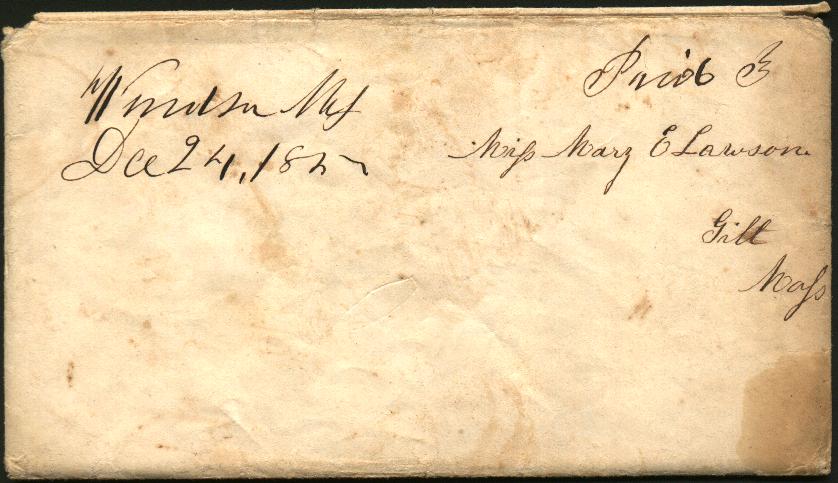 Windsor Ms
Dec 24, 185
Paid 3
Miss Mary E Lawson
Gill
Mass